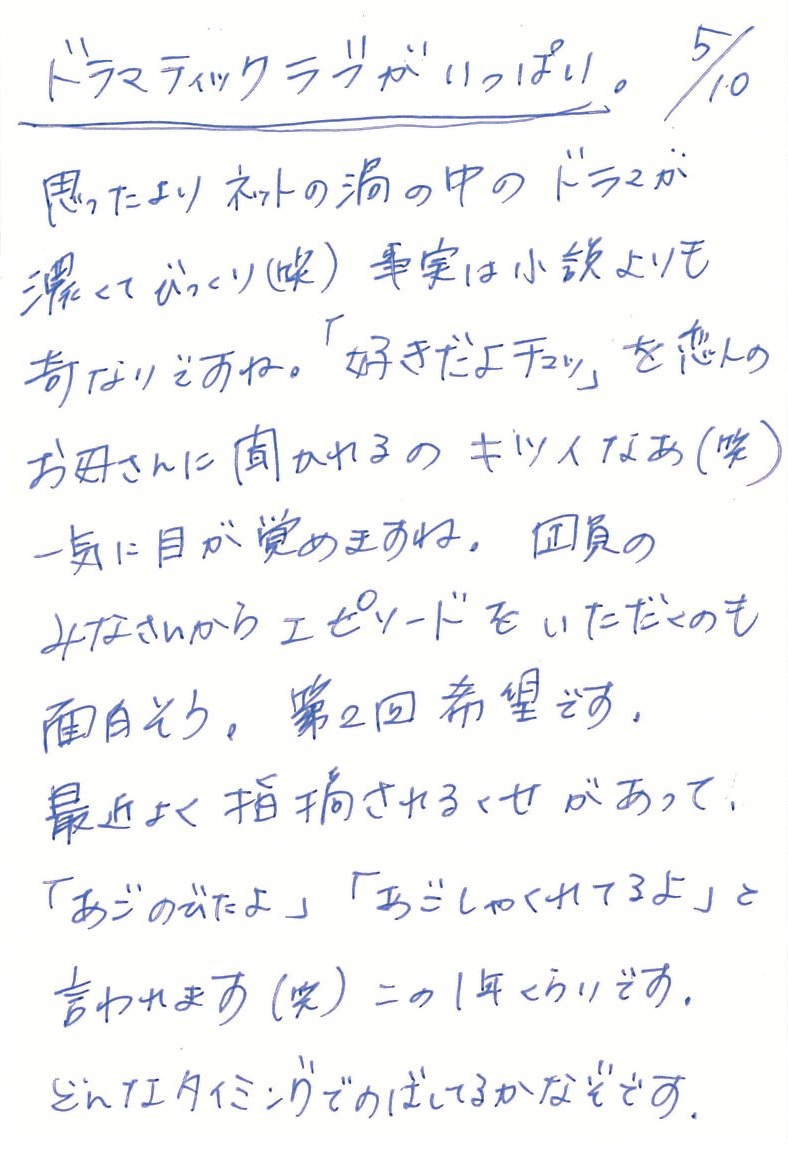 ドラマティックラブがいっぱい。 5/10
思ったよりネットの渦の中のドラマが
濃くてびっくり(笑) 事実は小説よりも
奇なりですね。「好きだよチュッ」を恋人の
お母さんに聞かれるのキツイなあ(笑)
一気に目が覚めますね。団員の
みなさんからエピソードをいただくのも
面白そう。第2回希望です。
最近よく指摘されるくせがあって、
「あごのびたよ」「あごしゃくれてるよ」と
言われます(笑)この1年くらいです。
どんなタイミングでのばしてるかなぞです。